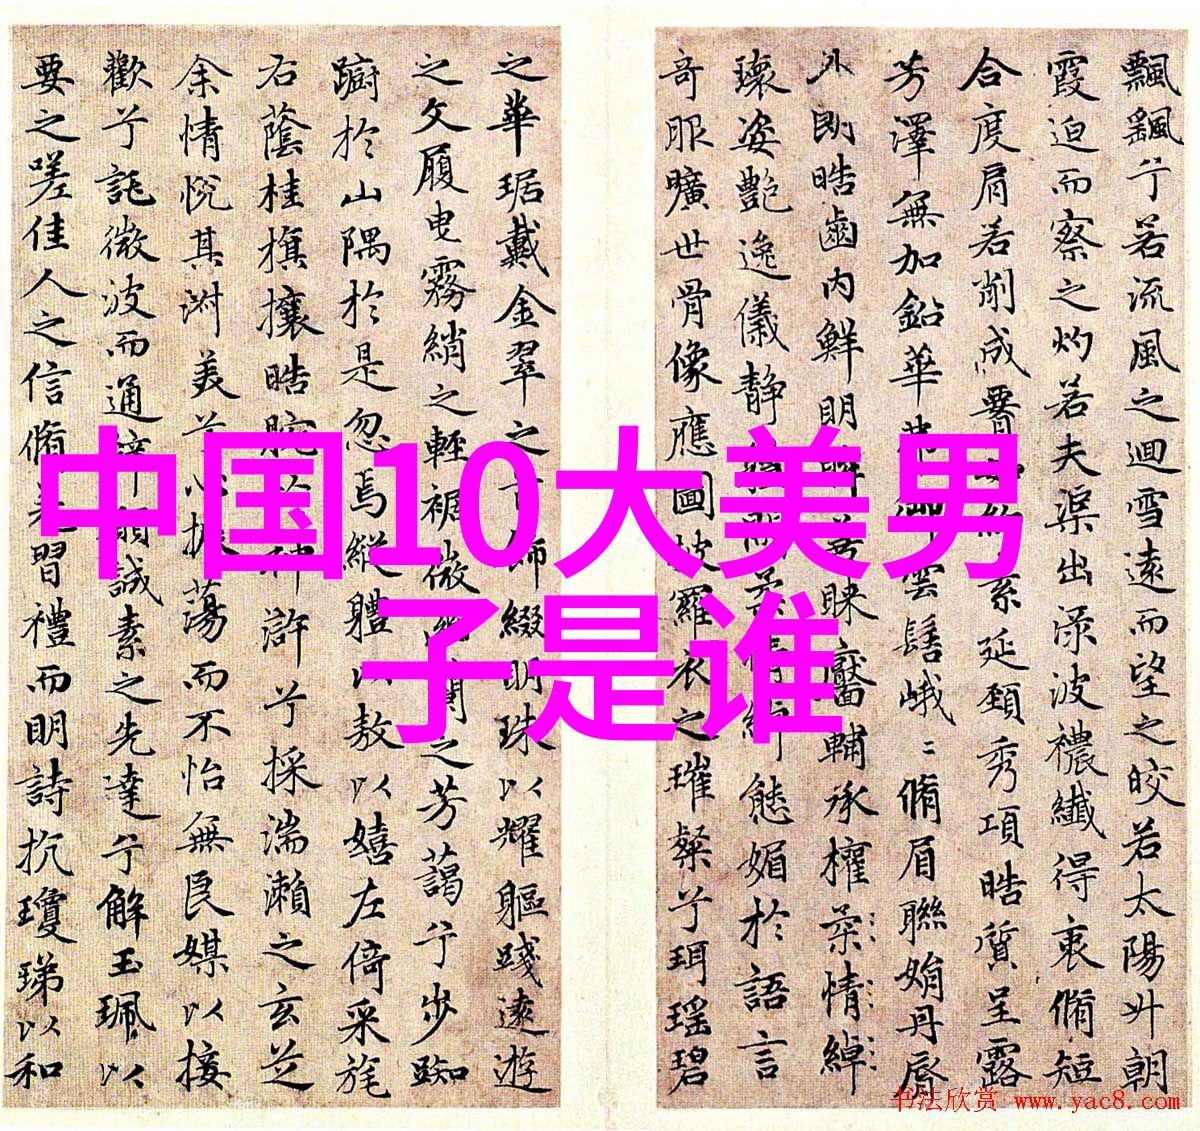 中国10大美男
子是谁
飄颻兮若流風之迴雪遠而望之皎若太陽升朝
霞迫而察之灼若夫渠出渌波襛纖得衷脩短
合度肩若削成素延頸秀項皓質呈露
芳澤無加鉛華弗御雲髻峨〻脩眉聯娟丹脣
外朗皓齒内鮮明眸善睞靨輔承權柔情綽
瓌姿艷逸儀静體閑柔情綽態媚於語言
奇服曠世骨像應圖披羅衣之璀粲兮珥瑶碧
之華琚戴金翠之首飾綴明珠以耀軀踐遠遊
之文履曳霧綃之輕裾微幽蘭之芳藹兮步踟
躕於山隅於是忽焉縱體以敖以嬉左倚采旄
右蔭桂旗攘皓腕於神滸兮採湍瀨之玄芝
余情悅其淑美兮心振蕩而不怡無良媒以接
歡兮託微波而通辭願誠素之先達兮解玉珮以
要之嗟佳人之信脩羌習禮而明詩抗瓊珶以和
书法欣赏 www.yac8.com